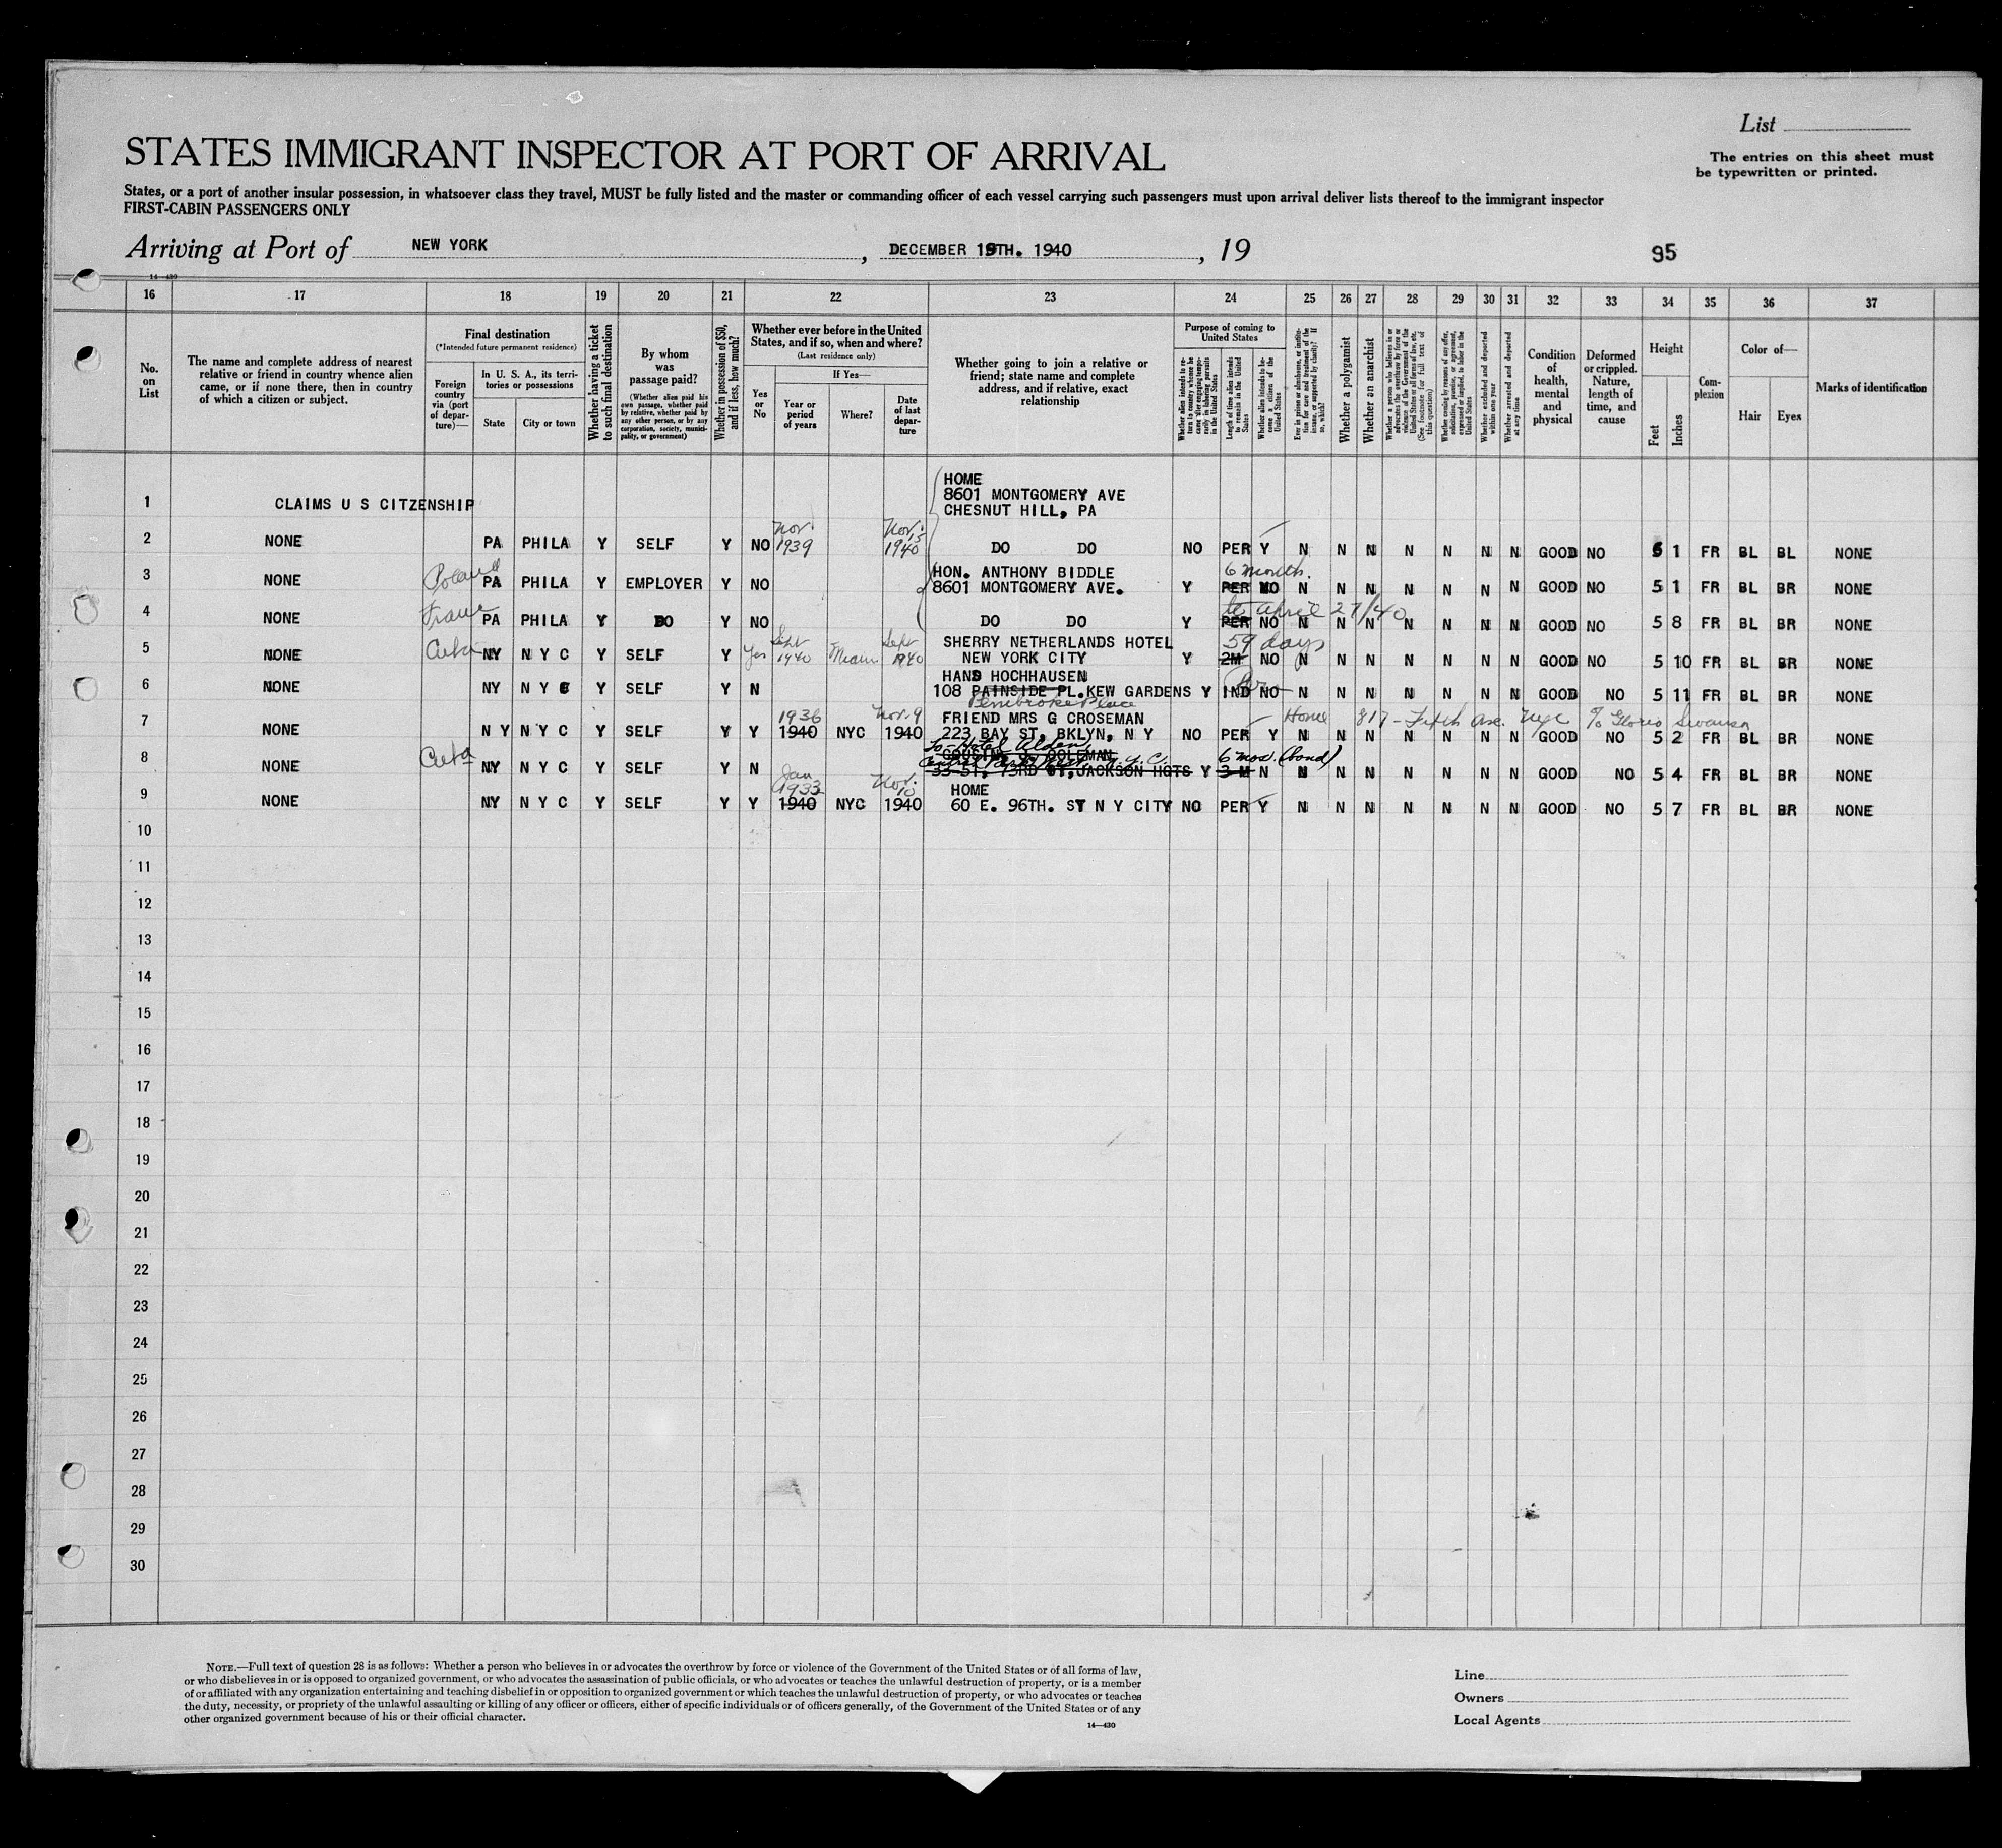 List
The entries on this sheet must
be typewritten or printed.
STATES IMMIGRANT INSPECTOR AT PORT OF ARRIVAL
States, or a port of another insular possession, in whatsoever class they travel, MUST be fully listed and the master or commanding officer of each vessel carrying such passengers must upon arrival deliver lists thereof to the immigrant inspector
FIRST-CABIN PASSENGERS ONLY
Arriving at Port of NEW YORK, DECEMBER 19TH. 1940, 19
95
14—430
16 17 18 19 20 21 22 23 24 25 26 27 28 29 30 31 32 33 34 35 36 37
No. on List
The name and complete address of nearest relative or friend in country whence alien came, or if none there, then in country of which a citizen or subject.
Final destination
(*Intended future permanent residence)
Foreign country via (port of departure)—
In U. S. A., its territories or possessions
State
City or town
Whether having a ticket to such final destination
By whom was passage paid?
(Whether alien paid his own passage, whether paid by relative, whether paid by any other person, or by any corporation, society, municipality, or government)
Whether in possession of $50, and if less, how much?
Whether ever before in the United States, and if so, when and where?
(Last residence only)
Yes or No
If Yes—
Year or period of years
Where?
Date of last departure
Whether going to join a relative or friend; state name and complete address, and if relative, exact relationship
Purpose of coming to United States
Length of time alien intends to remain in the United States
Whether alien intends to become a citizen of the United States
Whether a polygamist
Whether an anarchist
Whether excluded and deported within one year
Whether arrested and deported at any time
Condition of health, mental and physical
Deformed or crippled. Nature, length of time, and cause
Height
Feet
Inches
Complexion
Color of—
Hair
Eyes
Marks of identification
1 CLAIMS U S CITZENSHIP HOME
8601 MONTGOMERY AVE
CHESNUT HILL, PA
2 NONE PA PHILA Y SELF Y NO Nov. 1939 Nov. 15 1940 DO DO NO PER Y N N N N N N N GOOD NO 5 1 FR BL BL NONE
3 NONE Poland PA PHILA Y EMPLOYER Y NO HON. ANTHONY BIDDLE
8601 MONTGOMERY AVE. Y 6 months. PER NO N N N N N N N GOOD NO 5 1 FR BL BR NONE
4 NONE PA PHILA Y DO Y NO DO DO Y to April 27/40 PER NO N N N N N N N GOOD NO 5 8 FR BL BR NONE
5 NONE Cuba NY N Y C Y SELF Y Yes Sept 1940 Miami Sept 1940 SHERRY NETHERLANDS HOTEL
NEW YORK CITY Y 59 days 2M NO N N N N N N N GOOD NO 5 10 FR BL BR NONE
6 NONE NY N Y C Y SELF Y N HANS HOCHHAUSEN
108 PAINSIDE PL. KEW GARDENS Y IND NO N N N N N N N GOOD NO 5 11 FR BL BR NONE
Pembroke Place
7 NONE N Y N Y C Y SELF Y Y 1936 1940 NYC Nov. 9 1940 FRIEND MRS G CROSEMAN
223 BAY ST, BKLYN, N Y NO PER Y N N N N N N N GOOD NO 5 2 FR BL BR NONE
Home 817 - Fifth Ave. NYC c/o Gloria Swanson
8 NONE Cuba NY N Y C Y SELF Y N To - Hotel Alden,
N.Y.C.
COLEMAN
33-51. 73RD ST, JACKSON HGTS Y 6 mos. (bond) 3 M N N N N N N N N GOOD NO 5 4 FR BL BR NONE
9 NONE NY N Y C Y SELF Y Y Jan 1933 1940 NYC Nov. 10 1940 HOME
60 E. 96TH. ST N Y CITY NO PER Y N N N N N N N GOOD NO 5 7 FR BL BR NONE
10
11
12
13
14
15
16
17
18
19
20
21
22
23
24
25
26
27
28
29
30
NOTE.—Full text of question 28 is as follows: Whether a person who believes in or advocates the overthrow by force or violence of the Government of the United States or of all forms of law,
or who disbelieves in or is opposed to organized government, or who advocates the assassination of public officials, or who advocates or teaches the unlawful destruction of property, or is a member
of or affiliated with any organization entertaining and teaching disbelief in or opposition to organized government or which teaches the unlawful destruction of property, or who advocates or teaches
the duty, necessity, or propriety of the unlawful assaulting or killing of any officer or officers, either of specific individuals or of officers generally, of the Government of the United States or of any
other organized government because of his or their official character.
14—430
Line
Owners
Local Agents